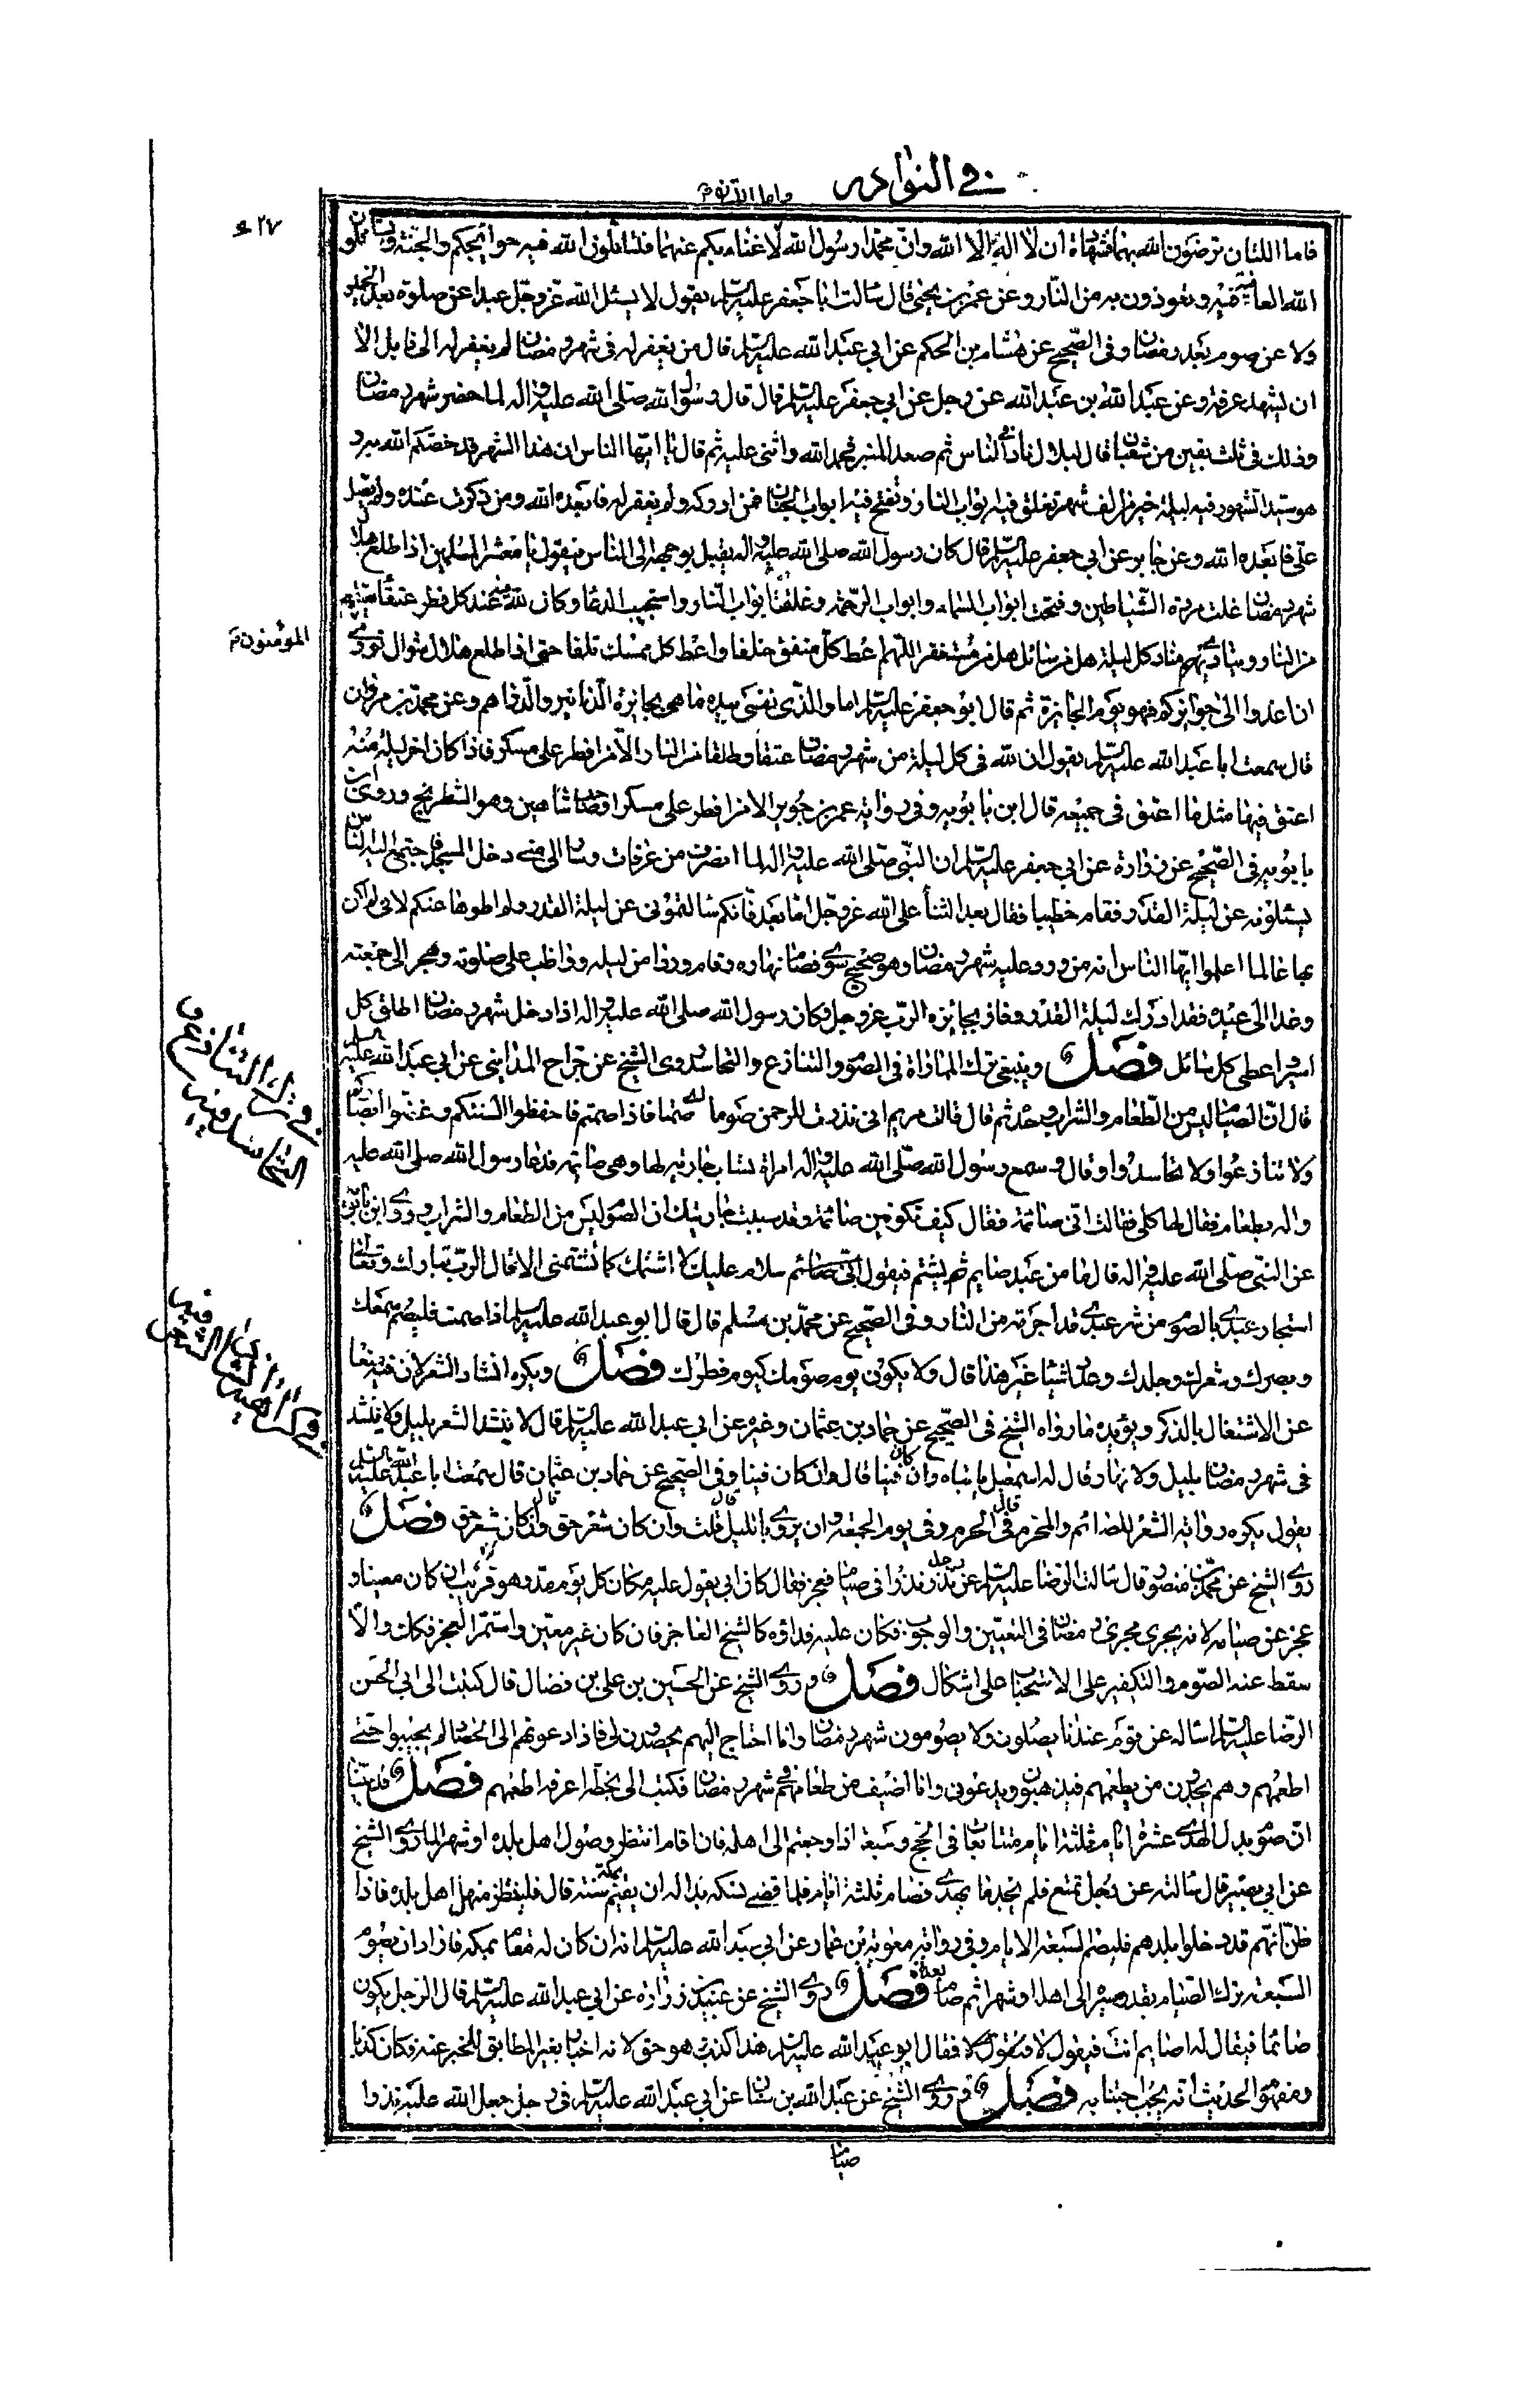 في النوادر
واما اللتان م
٢٧ء
فاما اللتان ترضون الله بهما فشهادة ان لا اله الا الله وان محمدا رسول الله لا غناء بكم عنهما فتسألون الله فيه حوائجكم والجنة وتسألون
الله العافية فيه وتعوذون به من النار وعن عمر بن يحيى قال سالت ابا جعفر عليه السلام يقول لا يسئل الله عز وجل عبدا عن صلوة بعد
ولا عن صوم بعد رمضان وفى الصحيح عن هشام بن الحكم عن ابي عبد الله عليه السلام قال من لم يغفر له فى شهر رمضان لم يغفر له الى قابل الا
ان يشهد عرفة وعن عبد الله بن عبد الله عن رجل عن ابي جعفر عليه السلام قال قال رسول الله صلى الله عليه واله لما حضر شهر رمضان
وذلك فى ثلث بقين من شعبان قال لبلال ناد فى الناس ثم صعد المنبر فحمد الله واثنى عليه ثم قال يا ايها الناس ان هذا الشهر قد خصكم الله به و
هو سيد الشهور فيه ليلة خير من الف شهر تغلق فيه ابواب النار وتفتح فيه ابواب الجنان فمن ادركه ولم يغفر له فابعده الله ومن ذكرت عنده ولم يصل
على فابعده الله وعن جابر عن ابي جعفر عليه السلام قال كان رسول الله صلى الله عليه واله يقبل بوجهه الى الناس فيقول يا معشر المسلمين اذا طلع هلال
شهر رمضان غلت مردة الشياطين وفتحت ابواب السماء وابواب الرحمة وغلقت ابواب النار واستجيب الدعاء وكان لله فيه عند كل فطر عتقاء
من النار وينادي مناد كل ليلة هل من سائل هل من مستغفر اللهم اعط كل منفق خلفا واعط كل ممسك تلفا حتى اذا طلع هلال شوال نودي
المؤمنون م
ان اغدوا الى جوائزكم فهو يوم الجائزة ثم قال ابو جعفر عليه السلام اما والذى نفسى بيده ما هى بجائزة الدنانير والدراهم وعن محمد بن مروان
قال سمعت ابا عبد الله عليه السلام يقول ان لله فى كل ليلة من شهر رمضان عتقاء وطلقاء من النار الا من افطر على مسكر فاذا كان اخر ليلة منه
اعتق فيها مثل ما اعتق فى جميعه قال ابن بابويه وفى رواية عمر بن يزيد الا من افطر على مسكر او شاهين وهو الشطرنج وروى ابن
بابويه فى الصحيح عن زرارة عن ابي جعفر عليه السلام ان النبى صلى الله عليه واله لما انصرف من عرفات وسار الى منى دخل المسجد فاجتمع اليه الناس
يسئلونه عن ليلة القدر فقام خطيبا فقال بعد الثناء على الله عز وجل اما بعد فانكم سالتمونى عن ليلة القدر ولم اطوها عنكم لانى لم اكن
بها عالما اعلموا ايها الناس انه من ورد عليه شهر رمضان وهو صحيح سوي فصام نهاره وقام وردا من ليله وواظب على صلوته وهجر الى جمعته
وغدا الى عيده فقد ادرك ليلة القدر وفاز بجائزة الرب عز وجل وكان رسول الله صلى الله عليه واله اذا دخل شهر رمضان اطلق كل
اسير واعطى كل سائل فصل وينبغى ترك المماراة فى الصوم والتنازع والتحاسد روى الشيخ عن جراح المداينى عن ابي عبد الله عليه السلام
في ترك التنازع و
التحاسد فيه
قال ان الصيام ليس من الطعام والشراب وحده ثم قال قالت مريم انى نذرت للرحمن صوما صمتا فاذا صمتم فاحفظوا السنتكم وغضوا ابصاركم
ولا تنازعوا ولا تحاسدوا قال وسمع رسول الله صلى الله عليه واله امراة تساب جارية لها وهى صائمة فدعا رسول الله صلى الله عليه
واله بطعام فقال لها كلى فقالت انى صائمة فقال كيف تكونين صائمة وقد سببت جاريتك ان الصوم ليس من الطعام والشراب وروى ابن بابويه
عن النبى صلى الله عليه واله قال ما من عبد صايم يشتم فيقول انى صائم سلام عليك لا اشتمك كما تشتمنى الا قال الرب تبارك وتعالى
استجار عبدي بالصوم من شر عبدي قد اجرته من النار وفى الصحيح عن محمد بن مسلم قال قال ابو عبد الله عليه السلام اذا صمت فليصم سمعك
وبصرك وشعرك وجلدك وعدد اشياء غير هذا قال ولا يكون يوم صومك كيوم فطرك فصل ويكره انشاد الشعر لان فيه
في كراهية انشاد الشعر فيه
عن الاشتغال بالذكر ويؤيده ما رواه الشيخ فى الصحيح عن حماد بن عثمان وغيره عن ابي عبد الله عليه السلام قال لا ينشد الشعر بليل ولا ينشد
فى شهر رمضان بليل ولا نهار وقال له اسمعيل يا ابتاه وان كان فينا قال وان كان فينا وفى الصحيح عن حماد بن عثمان قال سمعت ابا عبد الله عليه السلام
يقول يكره رواية الشعر للصائم والمحرم وفى الحرم وفى يوم الجمعة وان يروى بالليل قلت وان كان شعر حق قال وان كان شعر حق فصل
روى الشيخ عن محمد بن منصور قال سالت الرضا عليه السلام عن رجل نذر نذرا فى صيام فعجز فقال كان ابي يقول عليه مكان كل يوم مد وهو قريب ان كان معينا و
عجز عن صيامه لانه يجرى مجرى رمضان فى التعيين والوجوب فكان عليه فداؤه كالشيخ العاجز فان كان غير معين واستمر العجز فكذلك والا
سقط عنه الصوم والتكفير على الاستحباب على اشكال فصل روى الشيخ عن الحسين بن على بن فضال قال كتبت الى ابي الحسن
الرضا عليه السلام اسأله عن قوم عندنا يصلون ولا يصومون شهر رمضان وانا احتاج اليهم يحصدون لى فاذا دعوتهم الى الحصاد لم يجيبوا حتى
اطعمهم وهم يجدون من يطعمهم فيذهبون ويدعونى وانا اضيق من طعامهم فى شهر رمضان فكتب الى بخطه اعرفه اطعمهم فصل قد بينا
ان صوم بدل الهدي عشرة ايام ثلثة ايام متتابعات فى الحج وسبعة اذا رجعتم الى اهله فان اقام انتظر وصول اهل بلده او شهر لما روى الشيخ
عن ابي بصير قال سالته عن رجل تمتع فلم يجد ما يهدي فصام ثلثة ايام فلما قضى نسكه بدا له ان يقيم بمكة سنة قال فلينظر منهل اهل بلده فاذا
ظن انهم قد دخلوا بلدهم فليصم السبعة الايام وفى رواية معوية بن عمار عن ابي عبد الله عليه السلام انه ان كان له مقام بمكة فاراد ان يصوم
السبعة ترك الصيام بقدر مسيره الى اهله او شهرا ثم صام بعده فصل روى الشيخ عن عبيد بن زرارة عن ابي عبد الله عليه السلام قال الرجل يكون
صائما فيقال له اصايم انت فيقول لا فقال ابو عبد الله عليه السلام هذا كذب هو حق لانه اخبار بغير المطابق للمخبر عنه فكان كذبا
ومفهوم الحديث انه يجب اجتنابه فصل روى الشيخ عن عبد الله بن سنان عن ابي عبد الله عليه السلام فى رجل جعل الله عليه نذرا
صياما